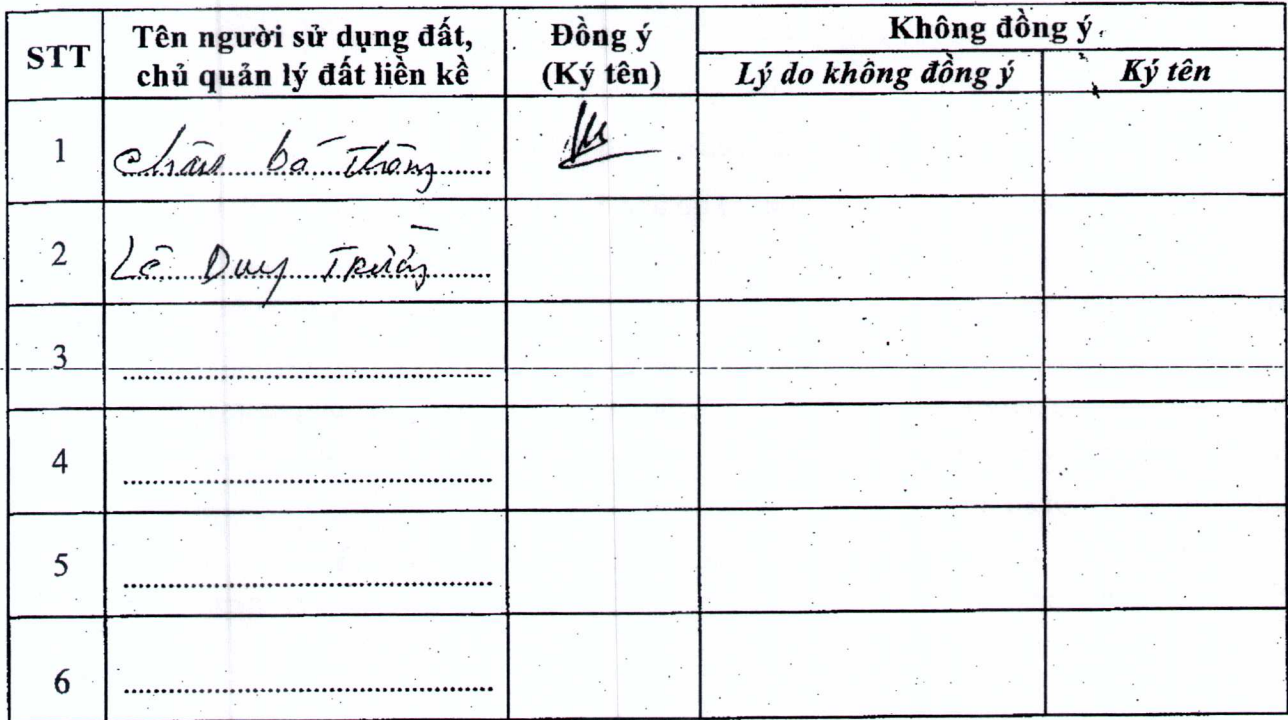 STT Tên người sử dụng đất, chủ quản lý đất liền kề Đồng ý (Ký tên) Không đồng ý
Lý do không đồng ý Ký tên
1 bá Thông
2 Lê Duy
3
4
5
6